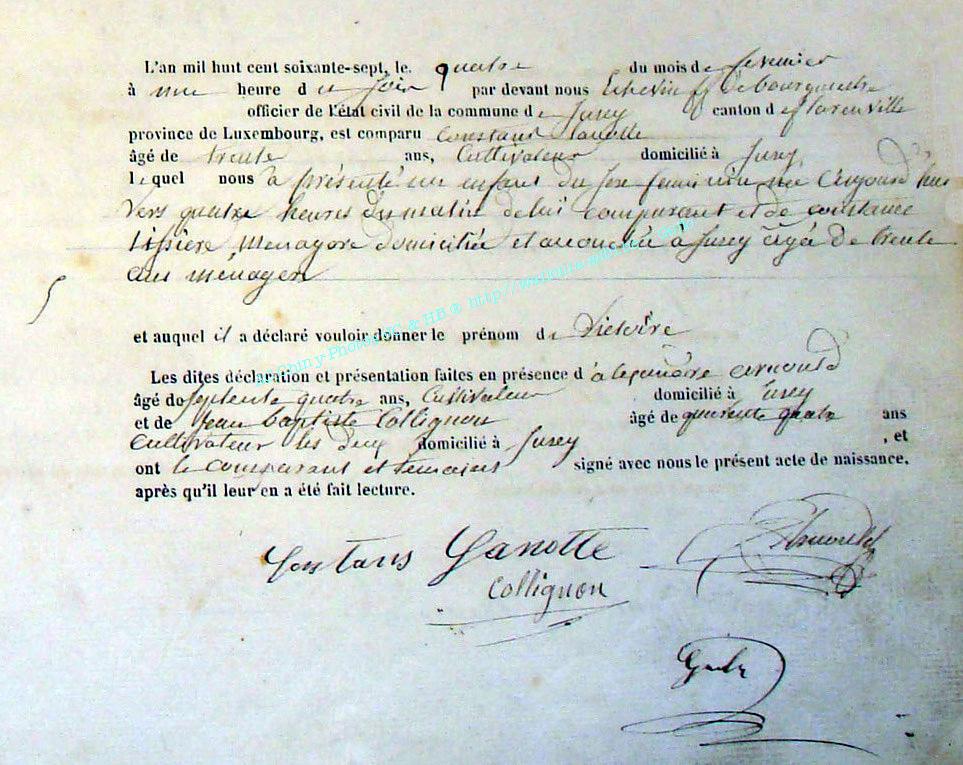 L'an mil huit cent soixante-sept, le quatre du mois de fevrier
à une heure du soir par devant nous Echevin ff de bourgmestre
officier de l'état civil de la commune de Jusey canton de florenville
province de Luxembourg, est comparu Constans
âgé de trente ans, Cultivateur domicilié à Jusey
lequel nous à présenté un enfant du sexe feminin né Aujourd'hui
vers quatre heures du matin de lui comparant et de constance
tissiere menagere domiciliée et accouchée à Jusey agée de trente
ans ménagere
5
et auquel il a déclaré vouloir donner le prénom de Victoire
Les dites déclaration et présentation faites en présence d'alexandre arnould
âgé de septente quatre ans, Cultivateur domicilié à Jusey
et de Jean baptiste Collignon âgé de quarente quatre ans
Cultivateur les deux domicilié à Jusey , et
ont le comparant et temoins signé avec nous le présent acte de naissance,
après qu'il leur en a été fait lecture.
Constans Lanotte
Collignon